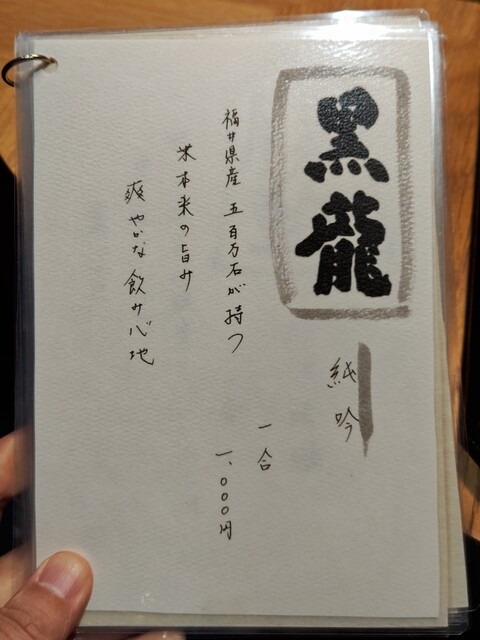 黒龍
純吟
一合
一、〇〇〇円
福井県産 五百万石が持つ
米本来の旨み
爽やかな飲み心地